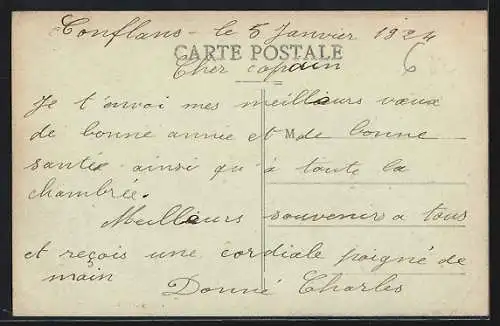 Conflans - le 5 Janvier 1924
CARTE POSTALE
6
Cher copain
Je t'envoi mes meilleurs vœux
de bonne année et M de bonne
santée ainsi qu'à toute la
chambrée.
Meilleurs souvenirs a tous
et reçois une cordiale poigné de
main
Donné Charles